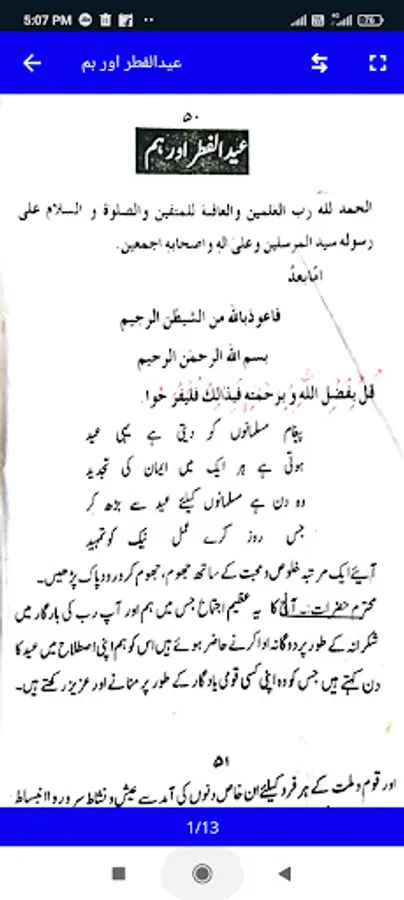 5:07 PM
عیدالفطر اور ہم
۵۰
عید الفطر اور ہم
الحمد لله رب العلمین والعاقبة للمتقین والصلوٰة و السلام علی
رسوله سید المرسلین وعلیٰ اٰله واصحابه اجمعین۔
امّا بعدُ
فاعوذبالله من الشیطٰن الرجیم
بسم الله الرحمٰن الرحیم
قُلْ بِفَضْلِ اللّٰهِ وَبِرَحْمَتِهٖ فَبِذَالِكَ فَلْيَفْرَحُوا۔
پیغام مسلمانوں کو دیتی ہے یہی عید
ہوتی ہے ہر ایک میں ایمان کی تجدید
وہ دن ہے مسلمانوں کیلئے عید سے بڑھ کر
جس روز کرے عمل نیک کو تمہید
آیئے ایک مرتبہ خلوص ومحبت کے ساتھ جھوم، جھوم کر درود پاک پڑھیں۔
محترم حضرات۔۔ آج کا یہ عظیم اجتماع جس میں ہم اور آپ رب کی بارگاہ میں
شکرانہ کے طور پر دوگانہ ادا کرنے حاضر ہوئے ہیں اس کو ہم اپنی اصطلاح میں عید کا
دن کہتے ہیں جس کو وہ اپنی کسی قومی یادگار کے طور پر منانے اور عزیز رکھتے ہیں۔
۵۱
اور قوم وملت کے ہر فرد کیلئے ان خاص دنوں کی آمد سے عیش ونشاط سرور وانبساط
1/13